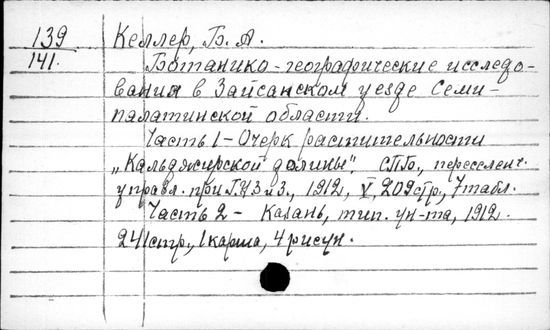 139 Келлер, Б. А.
141. Ботанико-географические исследо-
вания в Зайсанском уезде Семи-
палатинской области.
Часть 1 - Очерк растительности
„Кальджирской долины". СПб., переселенч.
управл. при Г.У.З. и З., 1912, V, 209 стр., 7 табл.
Часть 2 - Казань, тип. ун-та, 1912.
241 стр., 1 карта, 4 рисун.